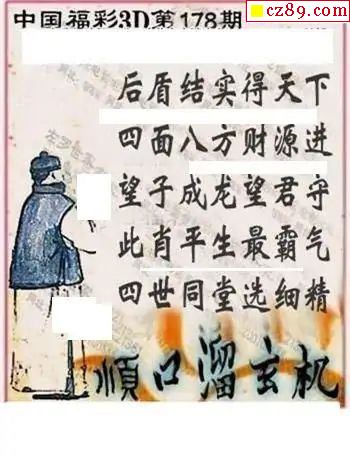 cz89.com
中国福彩3D第178期
后盾结实得天下
四面八方财源进
望子成龙望君守
此肖平生最霸气
四世同堂选细精
顺口溜玄机